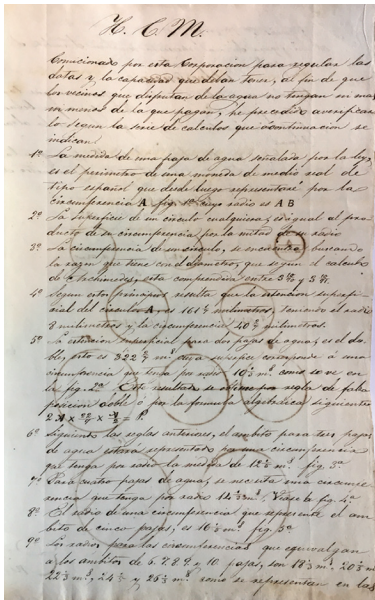 H. C. M.
Comicionado por esta Corporacion para regular las
datas y la capacidad que deban tener, al fin de que
los vecinos que disfrutan de la agua no tengan ni mas
ni menos de la que pagan, he procedido a verificar
lo segun la serie de calculos que á continuacion se
indican.
1º La medida de una paja de agua señalada por la ley,
es el perimetro de una moneda de medio real de
tipo español que desde luego representaré por la
circunferencia A fig. 1ª cuyo radio es A B
2º La superficie de un circulo cualquiera, es igual al pro
ducto de su circunferencia por la mitad de su radio
3º La circunferencia de un circulo, se encuentra buscando
la razon que tiene con el diametro, que segun el calculo
de Archimedes, esta comprendida entre
4º Segun estos principios resulta que la estencion superfi-
cial del circulo A es 161 milimetros teniendo el radio
milimetros y la circunferencia milimetros.
5º La estencion superficial para dos pajas de agua, es el do-
ble, esto es 322 m. cuya superficie corresponde á una
circunferencia que tenga por radio 10 m. como se ve en
la fig. 2ª Este resultado se obtiene por regla de falsa
posicion doble ó por la formula algebraica siguiente
6º Siguiendo las reglas anteriores, el ambito para tres pajas
de agua estara representado por una circunferencia
que tenga por radio la medida de 12 m. fig. 3ª
7º Para cuatro pajas de agua, se necesita una circunfe
rencia que tenga por radio 14 m. Vease la fig. 4ª
8º El radio de una circunferencia que represente el am-
bito de cinco pajas, es 16 m. fig. 5ª
9º Los radios para las circunferencias que equivalgan
a los ambitos de 6. 7. 8. 9. y 10 pajas, son 18 m. 20 m
22 m, 24 y 25 m como se representan en las